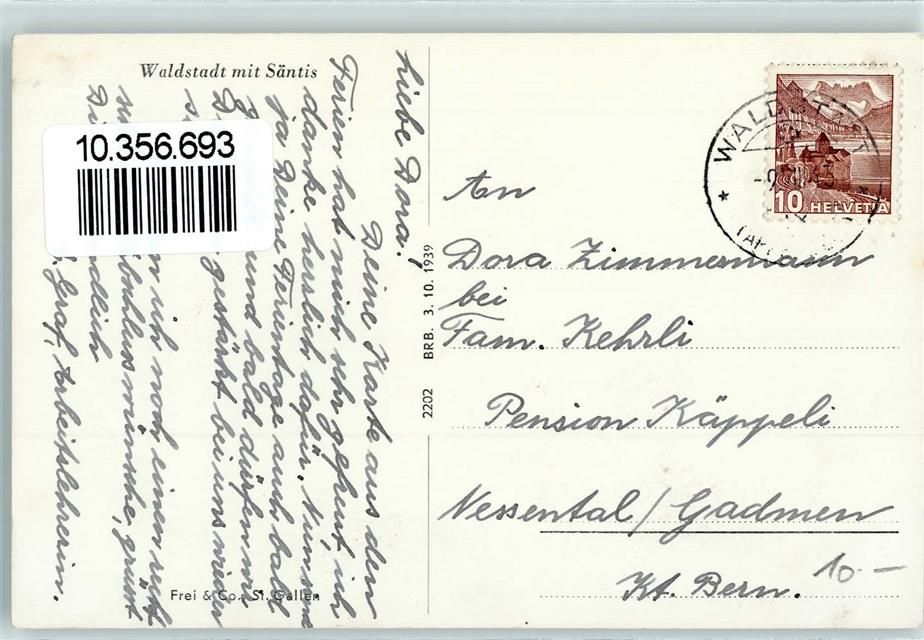 Waldstadt mit Säntis
10.356.693
Liebe Dora!
Deine Karte aus den
Ferien hat mich sehr gefreut, ich
danke herzlich dafür. Nun sind
ja Deine Ferientage auch bald
und bald dürfen wir
gestärkt bei uns wieder
ich noch einen recht
schluss wünsche, grüsst
Dich
Graf, Arbeitslehrerin.
Frei & Co., St. Gallen
2202 BRB. 3. 10. 1939
WALDSTATT
10 HELVETIA
An
Dora Zimmermann
bei
Fam. Kehrli
Pension Käppeli
Nessental / Gadmen
Kt. Bern.
10.—